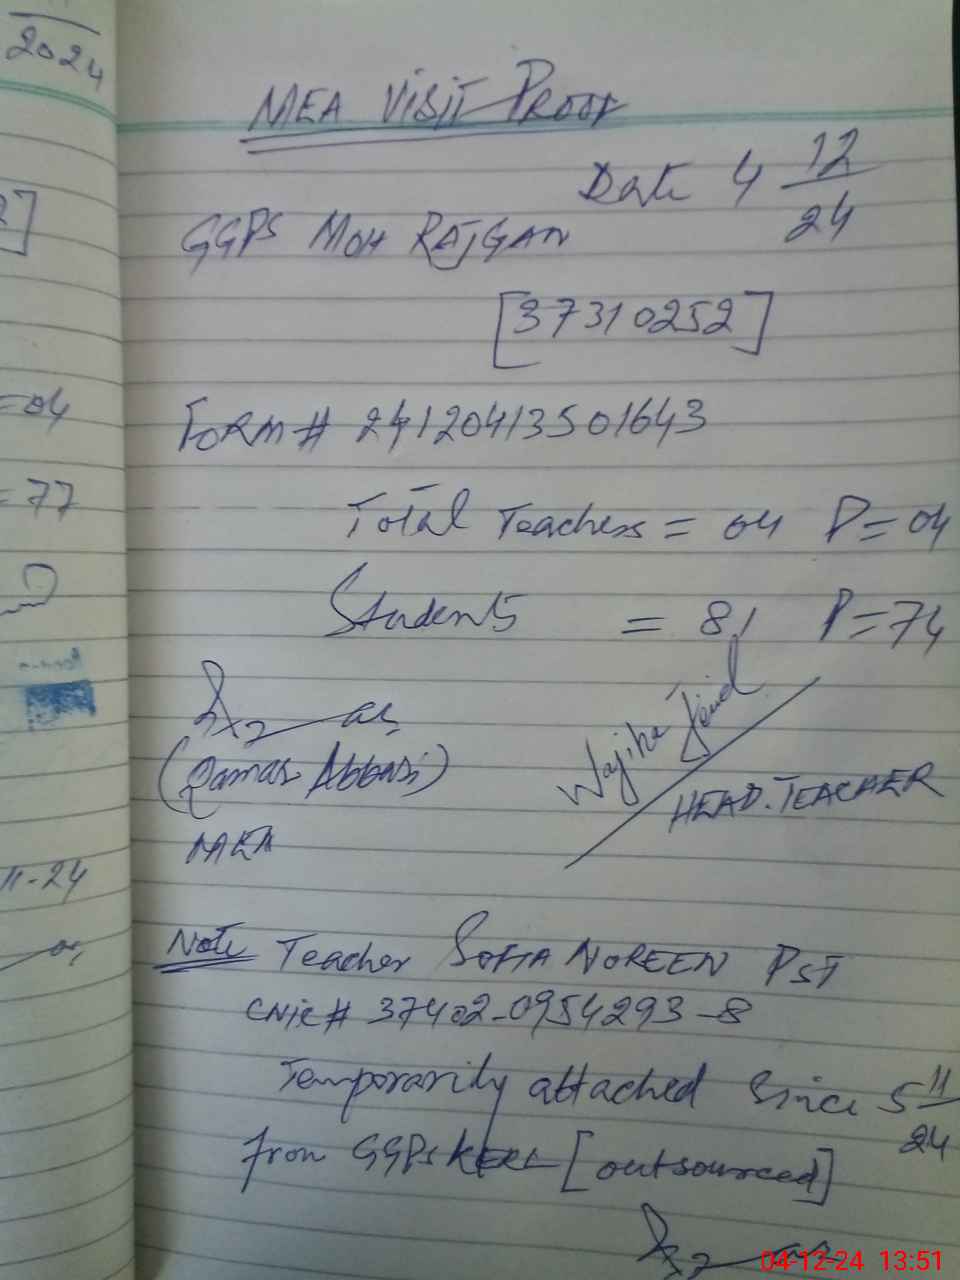 2024
MEA VISIT PROOF
Date 4 12/24
GGPS MOH RAJGAN
[37310252]
FORM # 24120413501643
=04
Total Teachers = 04 P=04
=77
Students = 81 P=74
(Qamar Abbasi)
MEA
Wajiha
HEAD.TEACHER
11-24
Note Teacher SOFIA NOREEN PST
CNIC # 37402-0954293-8
Temporarily attached Since 5 11/24
from GGPS [outsourced]
04-12-24 13:51